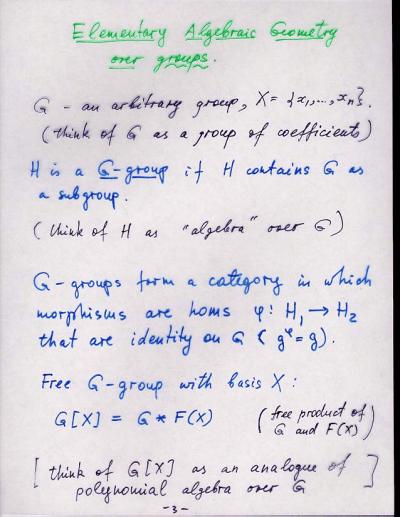 Elementary Algebraic Geometry
over groups.
G - an arbitrary group, X = {x₁,...,xₙ}.
(think of G as a group of coefficients)
H is a G-group if H contains G as
a subgroup.
(think of H as "algebra" over G)
G-groups form a category in which
morphisms are homs φ: H₁ → H₂
that are identity on G (g^φ = g).
Free G-group with basis X:
G[X] = G * F(X) (free product of
G and F(X))
[think of G[X] as an analogue of
polynomial algebra over G]
-3-